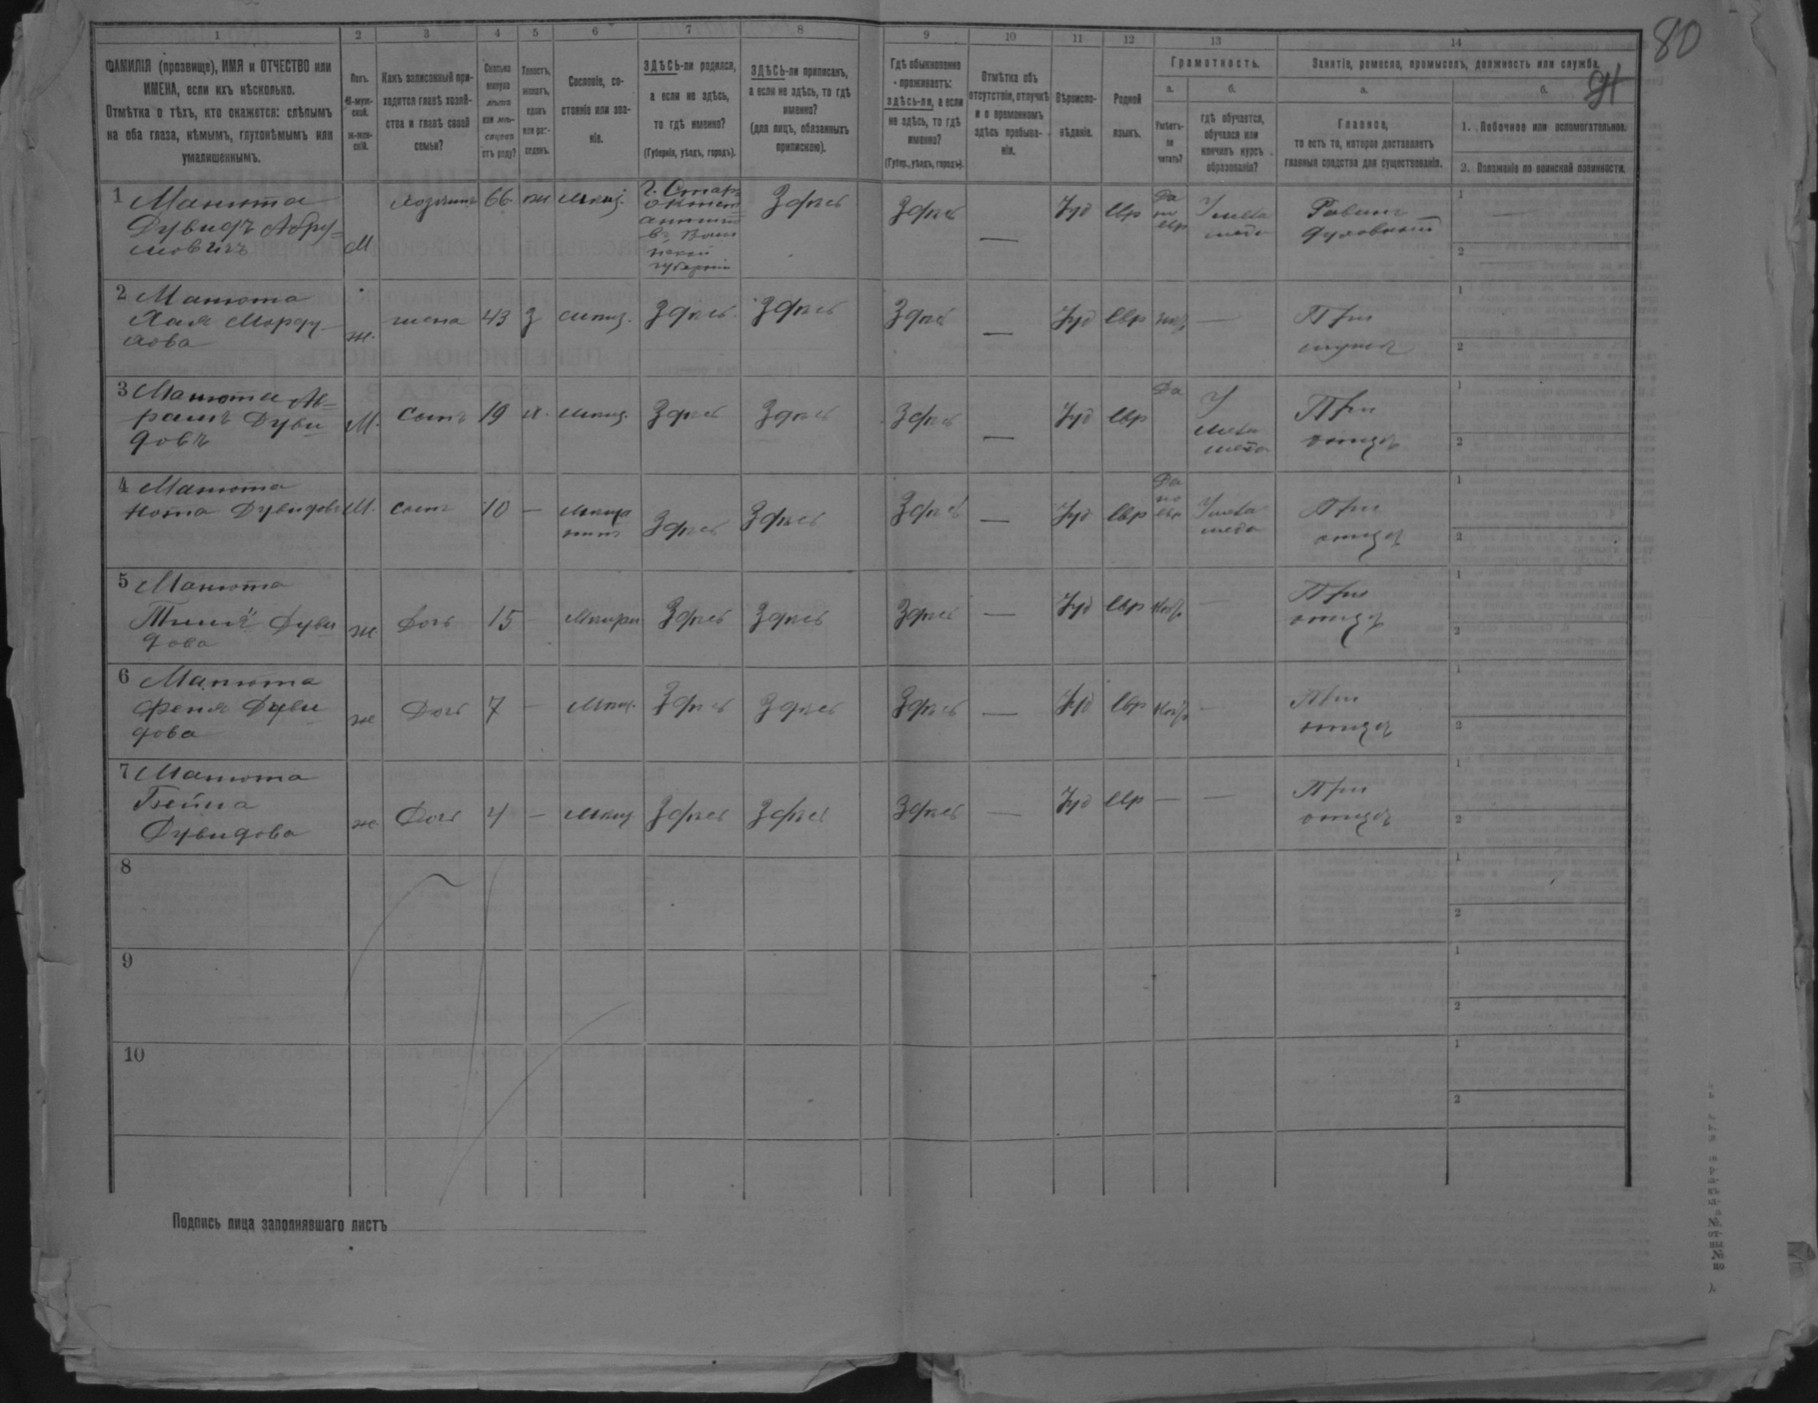 80
1 2 3 4 5 6 7 8 9 10 11 12 13 14
ФАМИЛІЯ (прозвище), ИМЯ и ОТЧЕСТВО или
ИМЕНА, если ихъ нѣсколько.
Отмѣтка о тѣхъ, кто окажется: слѣпымъ
на оба глаза, нѣмымъ, глухонѣмымъ или
умалишеннымъ.
Полъ.
М-муж-
ской.
ж-жен-
скій.
Какъ записанный при-
ходится главѣ хозяй-
ства и главѣ своей
семьи?
Сколько
минуло
лѣтъ
или мѣ-
сяцевъ
отъ роду?
Холостъ,
женатъ,
вдовъ
или раз-
веденъ.
Сословіе, со-
стояніе или зва-
ніе.
ЗДѢСЬ-ли родился,
а если не здѣсь,
то гдѣ именно?
(Губернія, уѣздъ, городъ).
ЗДѢСЬ-ли приписанъ,
а если не здѣсь, то гдѣ
именно?
(для лицъ, обязанныхъ
припискою).
Гдѣ обыкновенно
проживаетъ:
здѣсь-ли, а если
не здѣсь, то гдѣ
именно?
(Губер., уѣздъ, городъ).
Отмѣтка объ
отсутствіи, отлучкѣ
и о временномъ
здѣсь пребыва-
ніи.
Вѣроиспо-
вѣданіе.
Родной
языкъ.
Грамотность.
а.
Умѣетъ-
ли
читать?
б.
гдѣ обучается,
обучался или
кончилъ курсъ
образованія?
Занятіе, ремесло, промыселъ, должность или служба.
а.
Главное,
то есть то, которое доставляетъ
главныя средства для существованія.
б.
1. Побочное или вспомогательное.
2. Положеніе по воинской повинности.
1 Манюта
Дувидъ Абру-
мовичъ
М хозяинъ 66 жн мѣщ.
г. Стар-
оконст
антин
Здѣсь Здѣсь — Іуд евр
Да
по
евр
Раввинъ
духовный
1
2
2 Манюта
Хая Морду-
хова
ж. жена 43 з мѣщ. Здѣсь Здѣсь Здѣсь — Іуд евр —
При
мужѣ
1
2
3 Манюта Аб-
рамъ Дуви
довъ
М. сынъ 19 х. мѣщ. Здѣсь Здѣсь Здѣсь — Іуд евр Да
При
отцѣ
1
2
4 Манюта
Нота Дувидовъ
М. сынъ 10 — мѣща
нинъ
Здѣсь Здѣсь Здѣсь — Іуд евр
Да
по
евр
При
отцѣ
1
2
5 Манюта
Дуви
дова
ж Дочь 15 — Здѣсь Здѣсь Здѣсь — Іуд евр —
При
отцѣ
1
2
6 Манюта
Феня Дуви
дова
ж Дочь 7 — мѣщ. Здѣсь Здѣсь Здѣсь — Іуд евр —
При
отцѣ
1
2
7 Манюта
Бейла
Дувидова
ж Дочь 4 — мѣщ Здѣсь Здѣсь Здѣсь — Іуд евр — —
При
отцѣ
1
2
8
1
2
9
1
2
10
1
2
Подпись лица заполнявшаго листъ